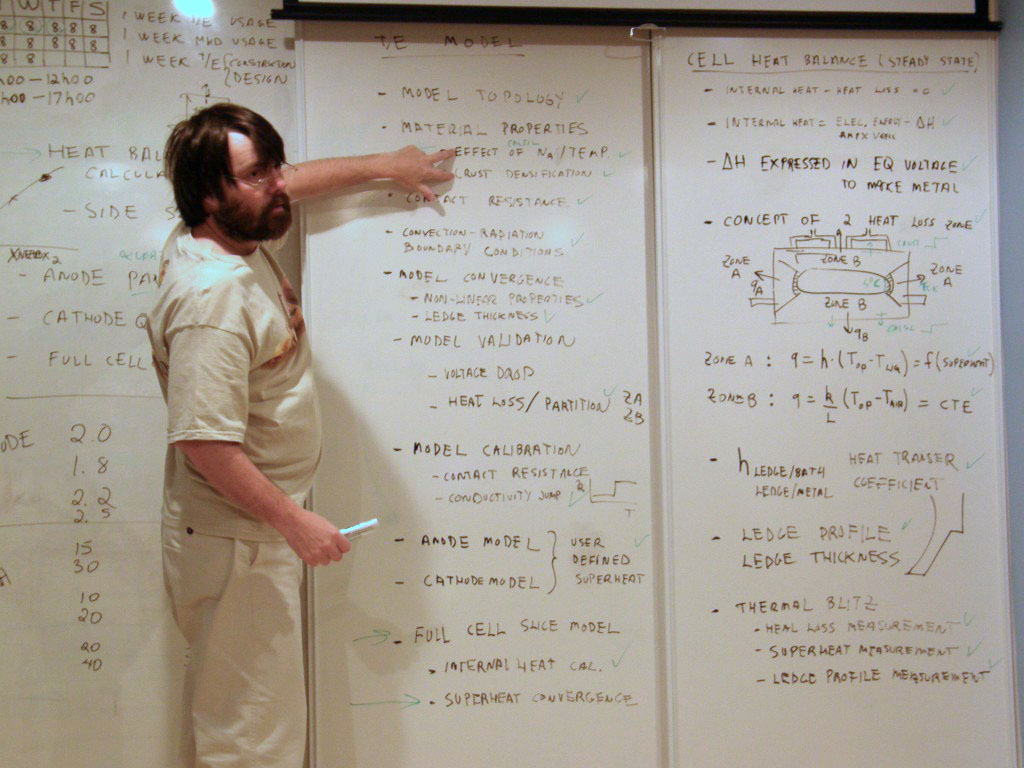 W T F S
8 8 8 8
8 8 8 8
8 8
1 WEEK T/E USAGE
1 WEEK MHD USAGE
1 WEEK T/E { CONSTRUCTION
DESIGN
h00 - 12h00
h00 - 17h00
HEAT BAL
CALCULA
- SIDE S
- ANODE PA
- CATHODE
- FULL CELL
ODE 2.0
1.8
2.2
2.5
15
30
10
20
20
40
T/E MODEL
- MODEL TOPOLOGY ✓
- MATERIAL PROPERTIES
- EFFECT OF Na / TEMP. ✓
CRUST DENSIFICATION ✓
- CONTACT RESISTANCE ✓
- CONVECTION-RADIATION
BOUNDARY CONDITIONS ✓
- MODEL CONVERGENCE
- NON-LINEAR PROPERTIES ✓
- LEDGE THICKNESS ✓
- MODEL VALIDATION
- VOLTAGE DROP
- HEAT LOSS / PARTITION ✓ ZA
ZB
- MODEL CALIBRATION
- CONTACT RESISTANCE
- CONDUCTIVITY JUMP ✓
k
T
- ANODE MODEL } USER ✓
DEFINED
- CATHODE MODEL SUPERHEAT
→ - FULL CELL SLICE MODEL
- INTERNAL HEAT CAL. ✓
→ - SUPERHEAT CONVERGENCE
CELL HEAT BALANCE (STEADY STATE)
- INTERNAL HEAT - HEAT LOSS = 0 ✓
- INTERNAL HEAT = ELEC. ENERGY - ΔH ✓
- ΔH EXPRESSED IN EQ VOLTAGE ✓
TO MAKE METAL
- CONCEPT OF 2 HEAT LOSS ZONE ✓
ZONE A
ZONE B
ZONE A
qA
ZONE B
qB
ZONE A : q = h·(Top - TLIQ) = f(SUPERHEAT)
ZONE B : q = k/L (Top - TAIR) = CTE
- h LEDGE/BATH HEAT TRANSER ✓
LEDGE/METAL COEFFICIENT
- LEDGE PROFILE ✓
LEDGE THICKNESS
- THERMAL BLITZ
- HEAL LOSS MEASUREMENT ✓
- SUPERHEAT MEASUREMENT ✓
- LEDGE PROFILE MEASUREMENT ✓